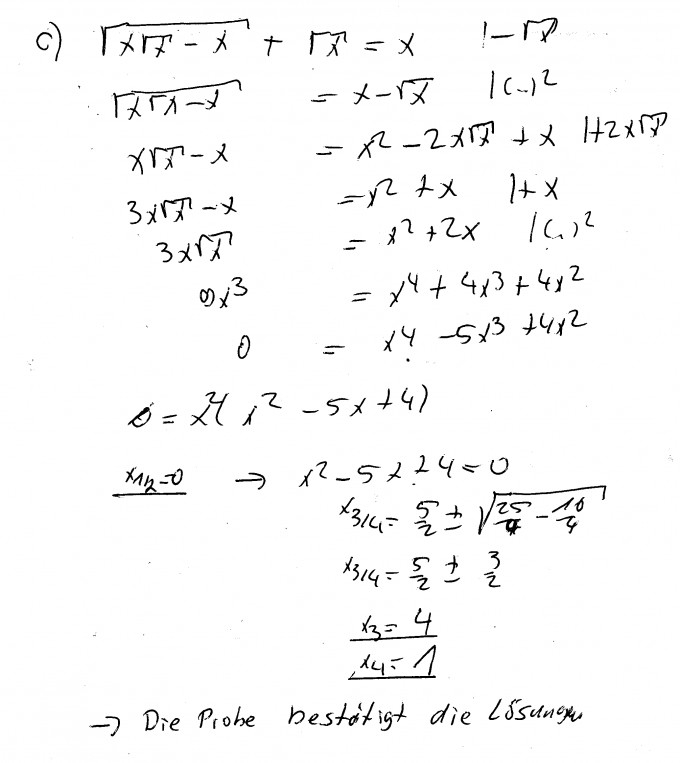 c) √(x√x - x) + √x = x |-√x
√(x√x - x) = x - √x |(..)²
x√x - x = x² - 2x√x + x |+2x√x
3x√x - x = x² + x |+ x
3x√x = x² + 2x |(..)²
9x³ = x⁴ + 4x³ + 4x²
0 = x⁴ - 5x³ + 4x²
0 = x²(x² - 5x + 4)
x₁/₂=0 → x² - 5x + 4 = 0
x₃/₄ = 5/2 ± √(25/4 - 16/4)
x₃/₄ = 5/2 ± 3/2
x₃ = 4
x₄ = 1
→ Die Probe bestätigt die Lösungen